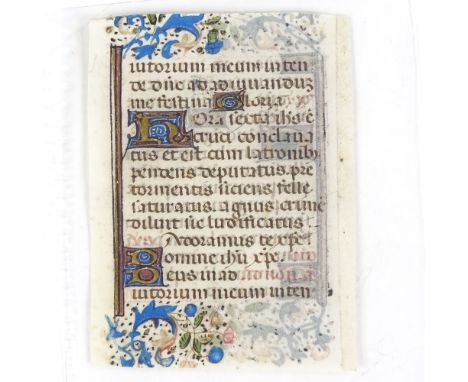 iutorium meum inten
de dñe ad adiuuanduz
me festina Gloria
Hora sexta ihs ē
cruci conclaua
tus et est cum latronibȝ
pendens deputatus. pre
tormentis siciens felle
saturatus. agnus crime
diluit sic ludificatus.
Adoramus te xp̄e
omine ihu xp̄e
Deus in ad
iutorium meum inten